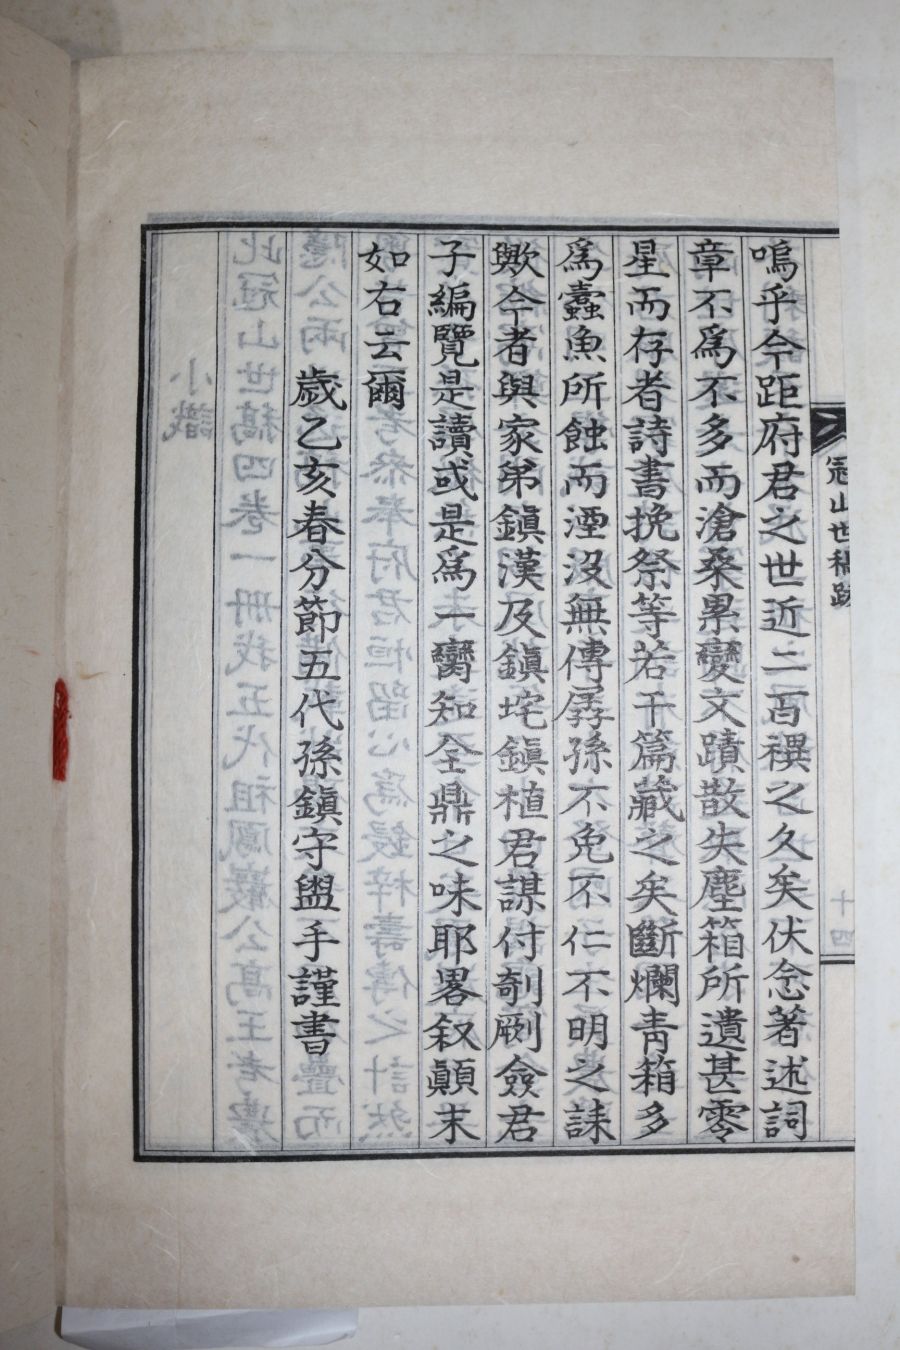 冠山世稿跋
十四
嗚乎今距府君之世近二百禩之久矣伏念著述詞
章不爲不多而滄桑累變文蹟散失塵箱所遺甚零
星而存者詩書挽祭等若干篇藏之矣斷爛靑箱多
爲蠹魚所蝕而湮沒無傳孱孫不免不仁不明之誅
歟今者與家弟鎭漢及鎭垞鎭植君謀付剞劂僉君
子編覽是讀或是爲一臠知全鼎之味耶畧叙顚末
如右云爾
歲乙亥春分節五代孫鎭守盥手謹書